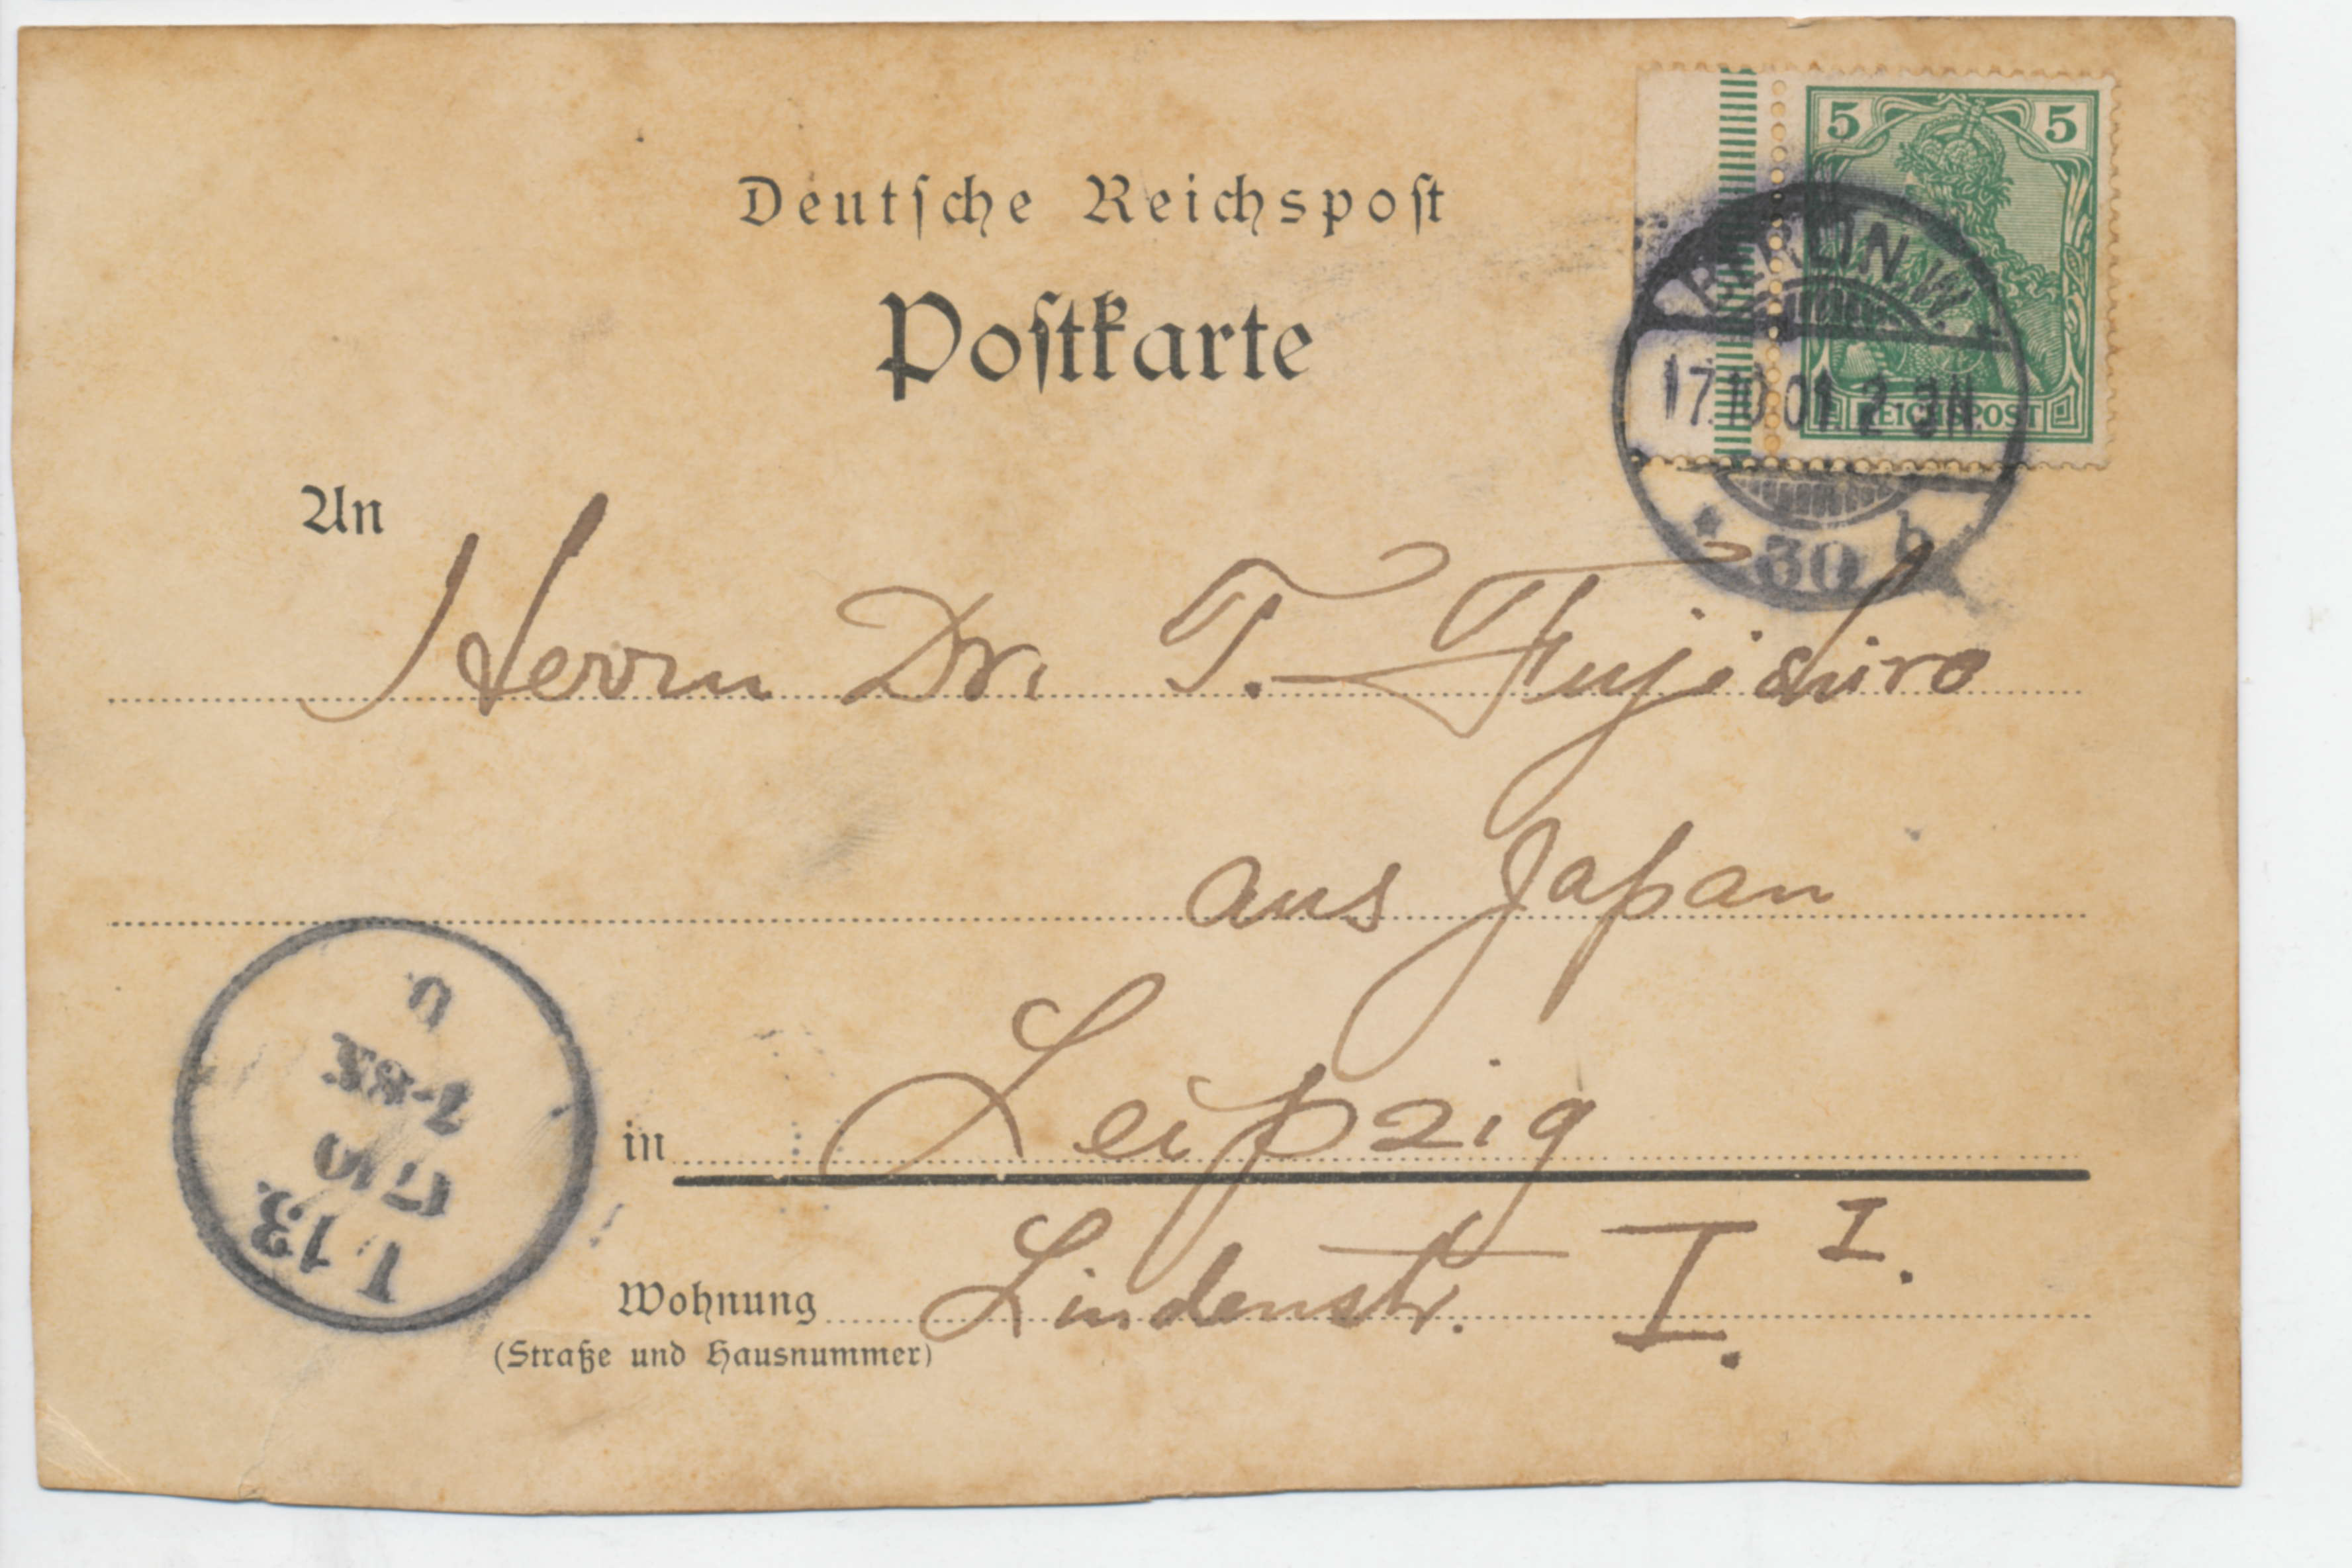 Deutsche Reichspost
Postkarte
5 5
REICHSPOST
BERLIN, W.
17.10.01. 2-3N.
* 30 b
An
Herrn Dr. T. Fujishiro
aus Japan
in Leipzig
Wohnung Lindenstr. I. I.
(Straße und Hausnummer)
L 13.
17 10
7-8N.